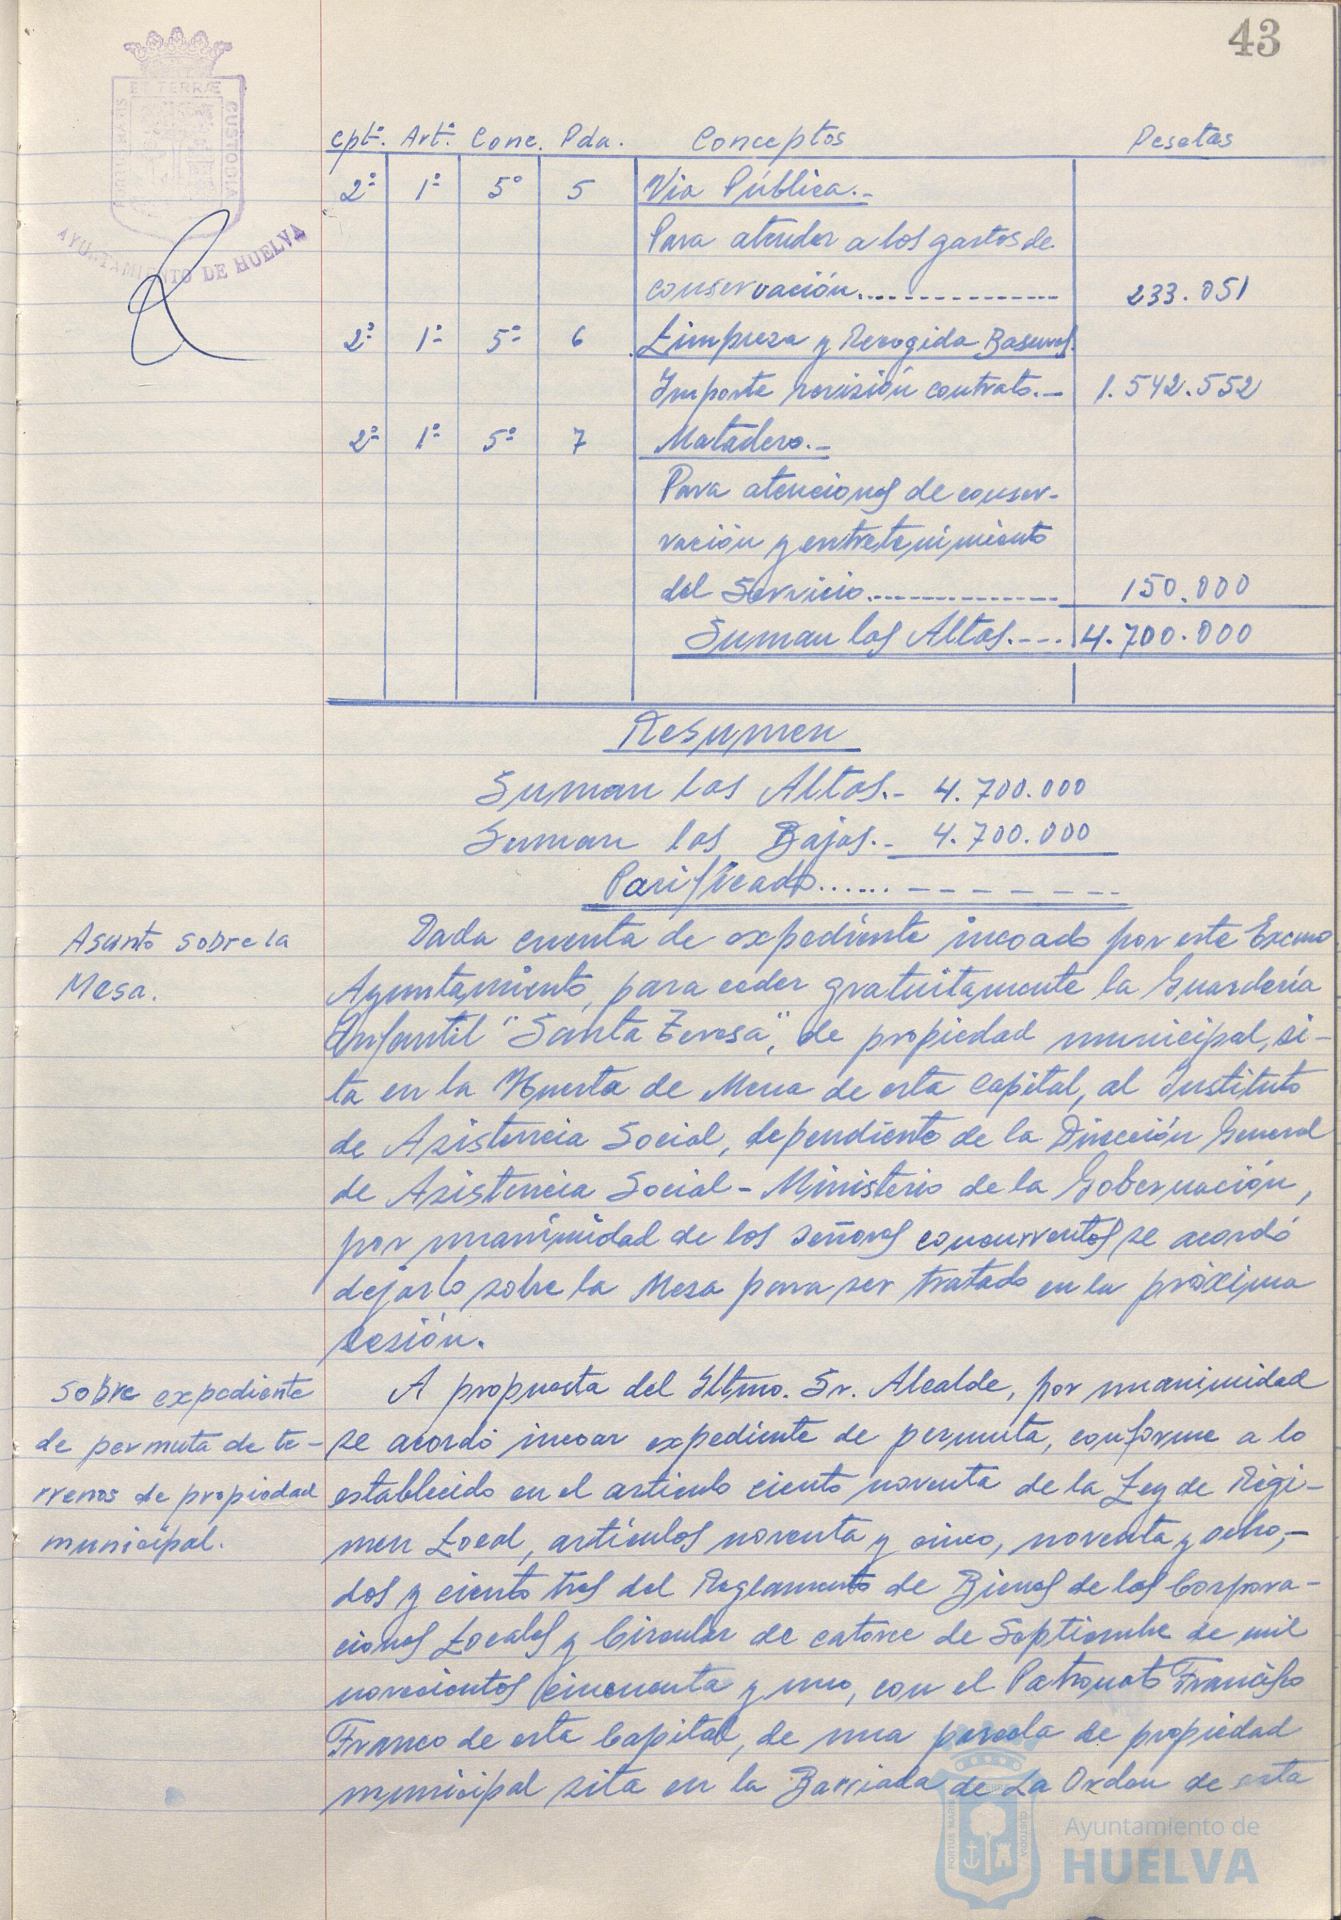 43
PORTUS MARIS ET TERRÆ CUSTODIA
AYUNTAMIENTO DE HUELVA
Cptº. Artº. Conc. Pda. Conceptos Pesetas
2º 1º 5º 5 Via Pública.-
Para atender a los gastos de
conservación................ 233.051
2º 1º 5º 6 Limpieza y Recogida Basuras.
Importe revisión contrato.- 1.542.552
2º 1º 5º 7 Matadero.-
Para atenciones de conser-
vación y entretenimiento
del Servicio................ 150.000
Suman las Altas.--- 4.700.000
Resumen
Suman las Altas.- 4.700.000
Suman las Bajas.- 4.700.000
Parificado...... - - - - - - -
Asunto sobre la
Mesa.
Dada cuenta de expediente incoado por este Excmo
Ayuntamiento, para ceder gratuitamente la Guardería
Infantil "Santa Teresa", de propiedad municipal, si-
ta en la Huerta de Mena de esta Capital, al Instituto
de Asistencia Social, dependiente de la Dirección General
de Asistencia Social - Ministerio de la Gobernación,
por unanimidad de los señores concurrentes se acordó
dejarlo sobre la Mesa para ser tratado en la próxima
sesión.
Sobre expediente
de permuta de te-
rrenos de propiedad
municipal.
A propuesta del Iltmo. Sr. Alcalde, por unanimidad
se acordó incoar expediente de permuta, conforme a lo
establecido en el articulo ciento noventa de la Ley de Régi-
men Local, artículos noventa y cinco, noventa y ocho,-
dos y ciento tres del Reglamento de Bienes de las Corpora-
ciones Locales y Circular de catorce de Septiembre de mil
novecientos cincuenta y uno, con el Patronato Francisco
Franco de esta Capital, de una parcela de propiedad
municipal sita en la Barriada de La Orden de esta
PORTUS MARIS CUSTODIA
Ayuntamiento de
HUELVA